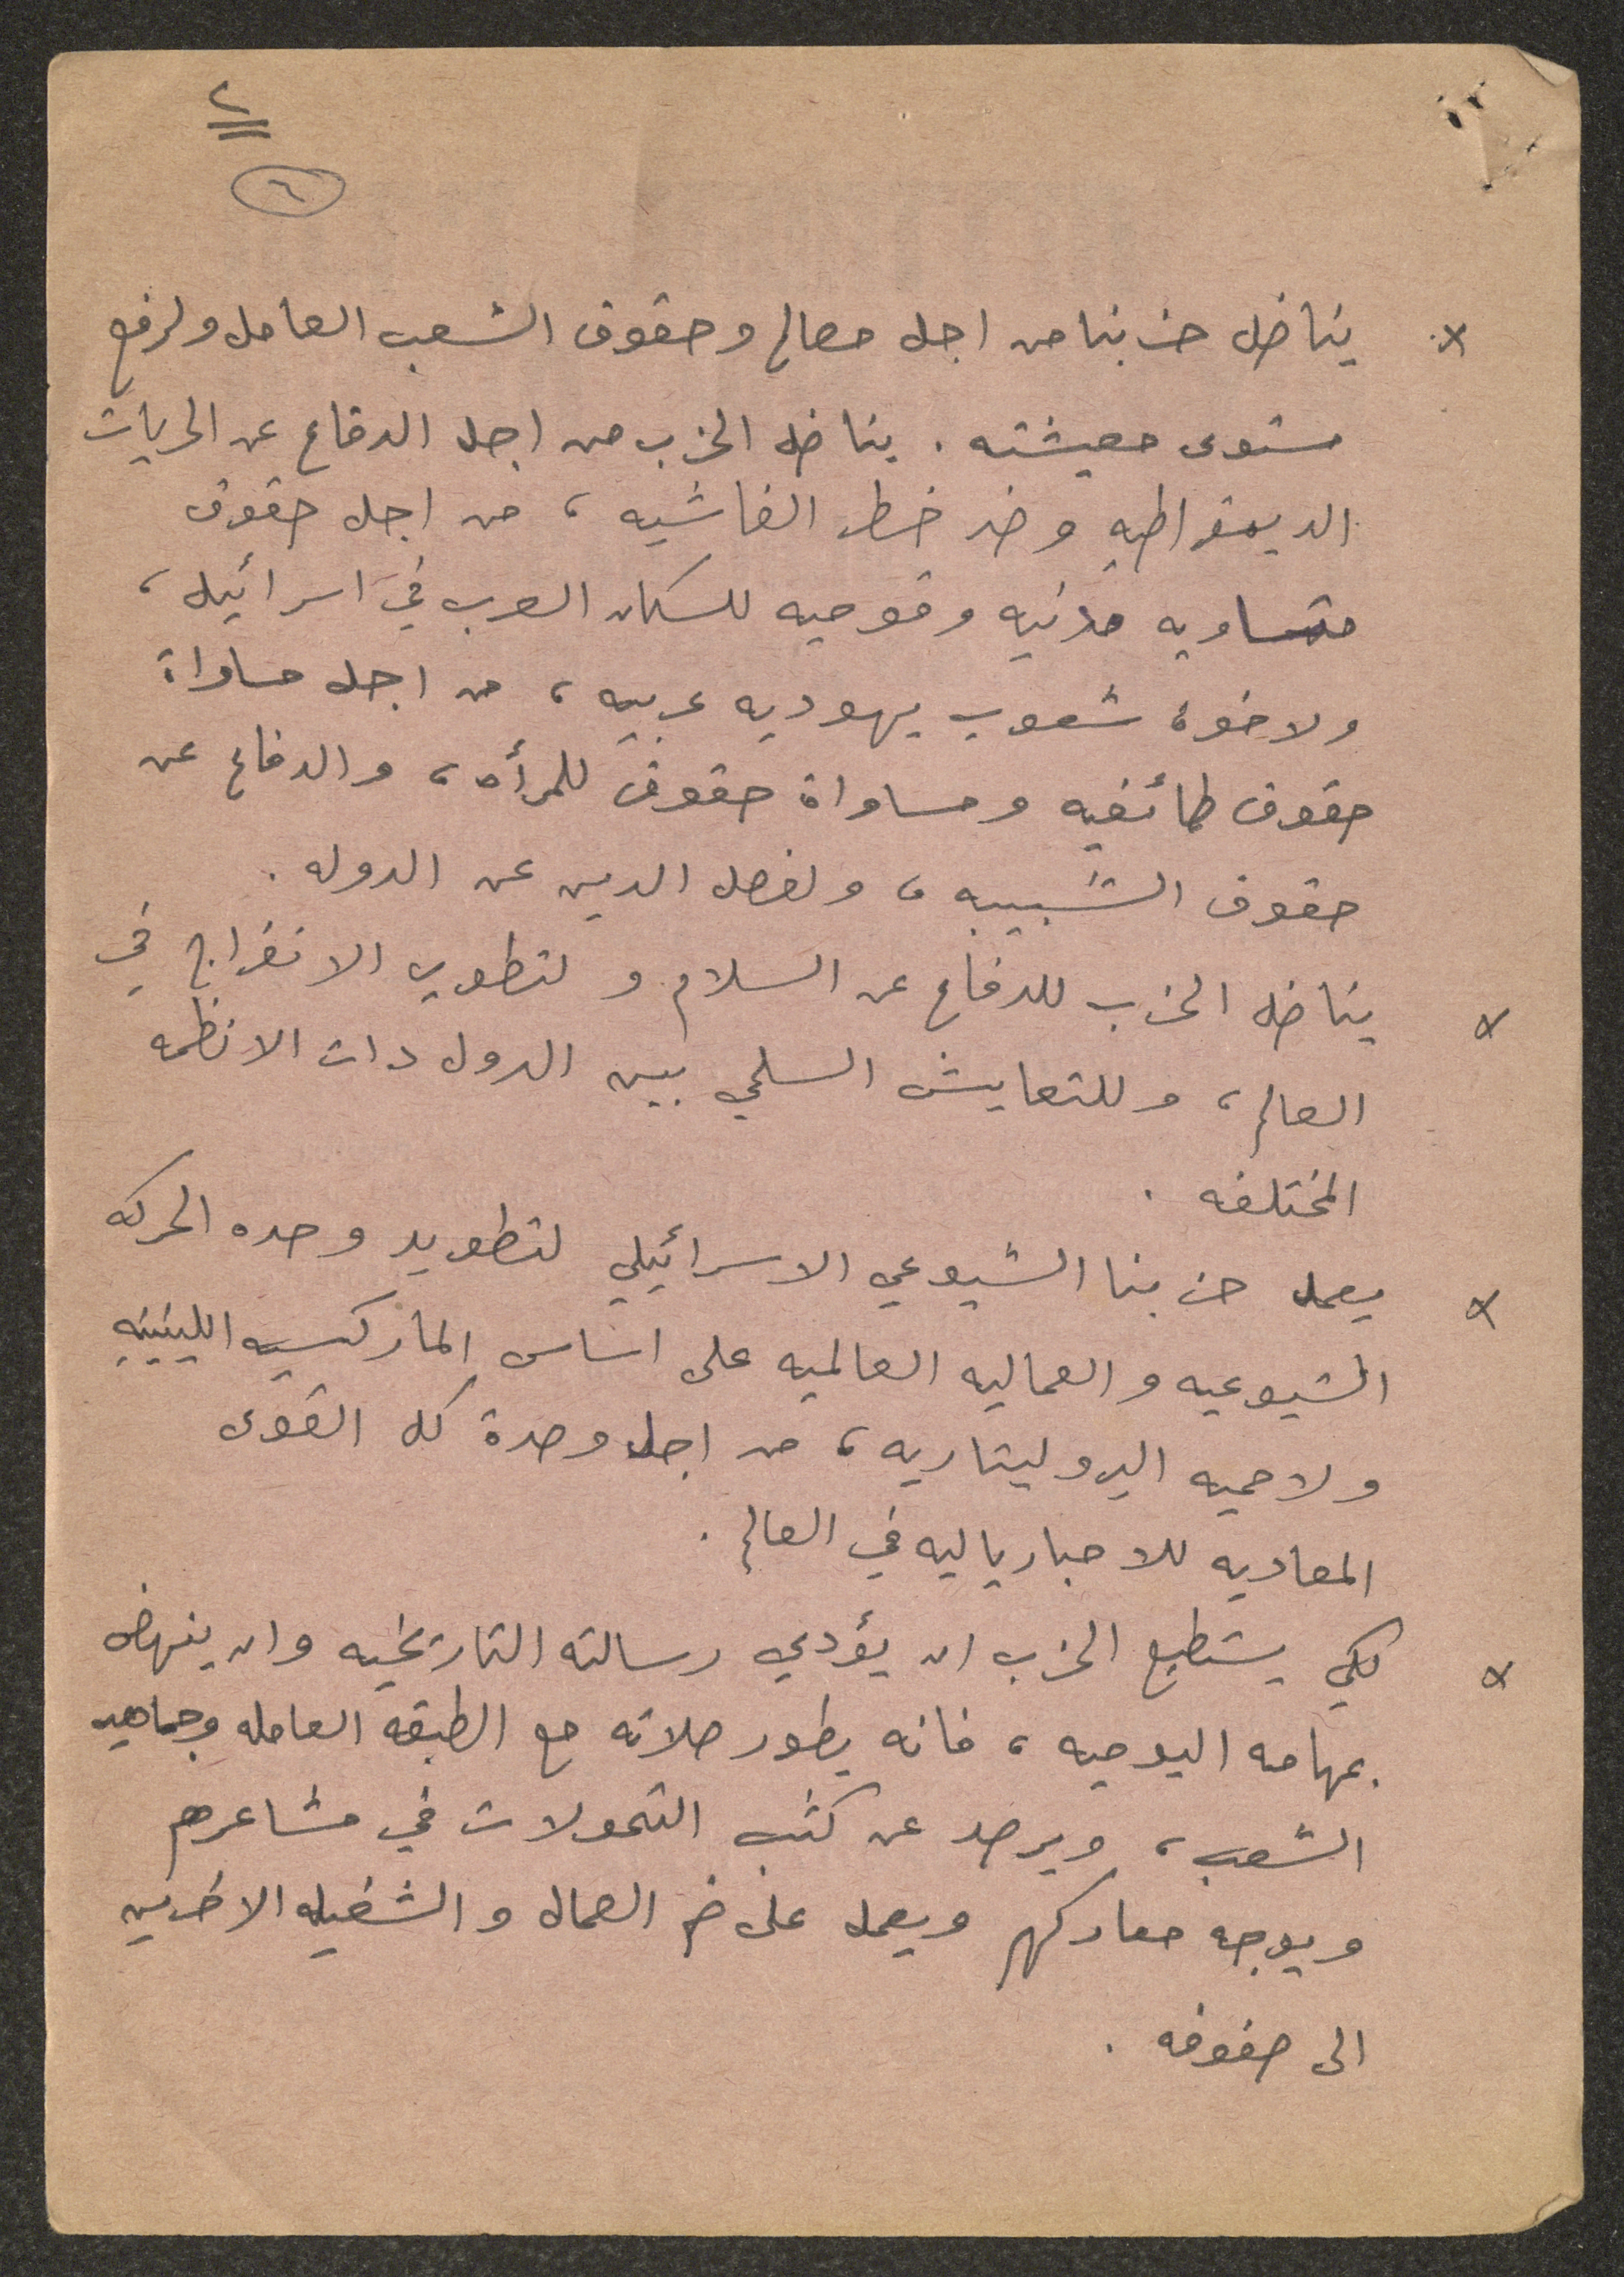 ٢
٦
× يناضل حزبنا من اجل مصالح وحقوق الشعب العامل ولرفع
مستوى معيشته . يناضل الحزب من اجل الدفاع عن الحريات
الديمقراطيه وضد خطر الفاشيه ، من اجل حقوق
متساويه مدنيه وقوميه للسكان العرب في اسرائيل ،
ولاخوة شعوب يهوديه عربيه ، من اجل مساواة
حقوق طائفيه ومساواة حقوق للمرأه ، والدفاع عن
حقوق الشبيبه ، ولفصل الدين عن الدوله .
× يناضل الحزب للدفاع عن السلام ولتطوير الانفراج في
العالم ، وللتعايش السلمي بين الدول ذات الانظمه
المختلفه .
× يعمل حزبنا الشيوعي الاسرائيلي لتطويد وحده الحركه
الشيوعيه والعماليه العالميه على اساس الماركسيه اللينينيه
ولاحميه البروليتاريه ، من اجل وحدة كل القوى
المعاديه للامبارياليه في العالم .
× لكي يستطيع الحزب ان يؤدي رسالته التاريخيه وان ينهض
بمهامه اليوميه ، فانه يطور صلاته مع الطبقه العامله وجماهير
الشعب ، ويرصد عن كثب التحولات في مشاعرهم
ويوجه معاركهم ويعمل على ضم العمال والشغيله الاخرين
الى صفوفه .